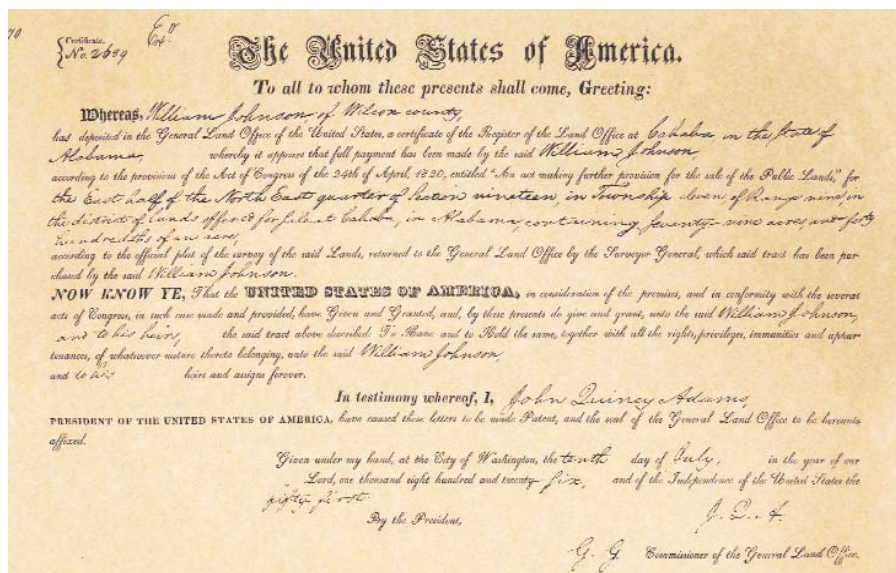 70
Certificate.
No. 2689
The United States of America.
To all to whom these presents shall come, Greeting:
Whereas, William Johnson, of Wilcox county,
has deposited in the General Land Office of the United States, a certificate of the Register of the Land Office at Cahaba in the State of
Alabama, whereby it appears that full payment has been made by the said William Johnson,
according to the provisions of the Act of Congress of the 24th of April, 1820, entitled "An act making further provision for the sale of the Public Lands," for
the East half of the North East quarter of Section nineteen, in Township eleven of Range nine in
the district of Lands offered for sale at Cahaba, in Alabama, containing seventy-nine acres and forty
hundredths of an acre,
according to the official plat of the survey of the said Lands, returned to the General Land Office by the Surveyor General, which said tract has been pur
chased by the said William Johnson.
NOW KNOW YE, That the UNITED STATES OF AMERICA, in consideration of the premises, and in conformity with the several
acts of Congress, in such case made and provided, have Given and Granted, and, by these presents do give and grant, unto the said William Johnson,
and to his heirs, the said tract above described: To Have and to Hold the same, together with all the rights, privileges, immunities and appur
tenances, of whatsoever nature thereto belonging, unto the said William Johnson,
and to his heirs and assigns forever.
In testimony whereof, I, John Quincy Adams,
PRESIDENT OF THE UNITED STATES OF AMERICA, have caused these letters to be made Patent, and the seal of the General Land Office to be hereunto
affixed.
Given under my hand, at the City of Washington, the tenth day of July, in the year of our
Lord, one thousand eight hundred and twenty six, and of the Independence of the United States the
fifty first
By the President, J. Q. A.
G. G. Commissioner of the General Land Office.